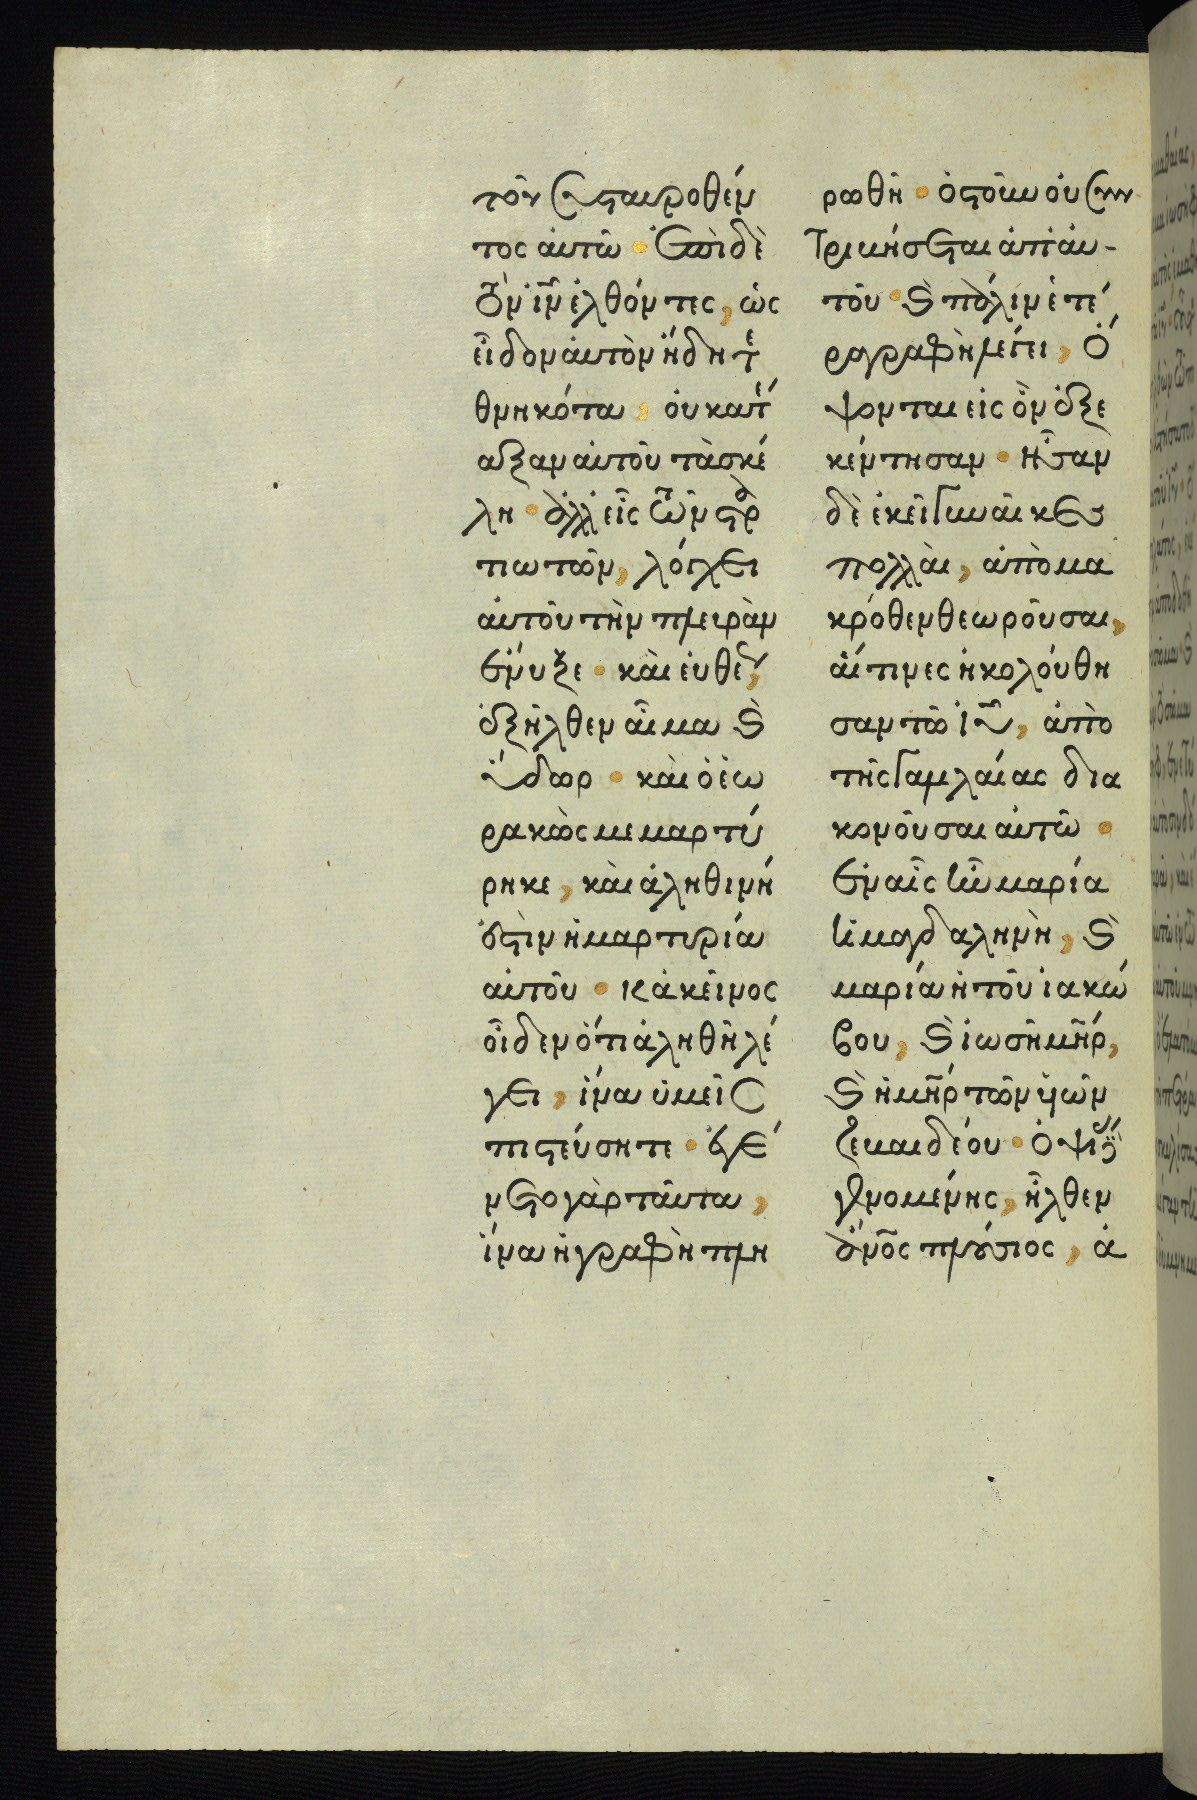 τοῦ συσταυροθέν
τος αὐτῶ · ἐπὶ δὲ
τὸν ἰν ἐλθόντες, ὡς
εἶδον αὐτὸν ἤδη τε
θνηκότα, οὐ κατέ
αξαν αὐτοῦ τὰ σκέ
λη · ἀλλ εἷς τῶν στρα
τιωτῶν, λόγχη
αὐτοῦ τὴν πλευρὰν
ἔνυξε · καὶ εὐθέως,
ἐξῆλθεν αἷμα καὶ
ὕδωρ · καὶ ὁ ἑω
ρακὼς μεμαρτύ
ρηκε, καὶ ἀληθινή
ἐστὶν ἡ μαρτυρία
αὐτοῦ · κἀκεῖνος
οἶδεν ὅτι ἀληθῆ λέ
γει, ἵνα ὑμεῖς
πιστεύσητε · ἐγέ
νετο γὰρ ταῦτα,
ἵνα ἡ γραφὴ πλη
ρωθῆ · ὀστοῦν οὐ συν
τριβήσεται ἀπ αὐ-
τοῦ · καὶ πάλιν ἑτέ
ρα γραφὴ λέγει, ὄ
ψονται εἰς ὃν ἐξε
κέντησαν · ἦσαν
δὲ ἐκεῖ γυναῖκες
πολλαὶ, ἀπὸ μα
κρόθεν θεωροῦσαι,
αἵτινες ἠκολούθη
σαν τῶ ιυ, ἀπὸ
τῆς γαλιλαίας δια
κονοῦσαι αὐτῶ ·
ἐν αἷς ἦν μαρία
ἡ μαγδαληνὴ, καὶ
μαρία ἡ τοῦ ἰακώ
βου, καὶ ἰωσῆ μηρ,
καὶ ἡ μηρ τῶν υἱῶν
ζεβεδαίου · ὀψίας
γενομένης, ἦλθεν
ἄνος πλούσιος, ἀ